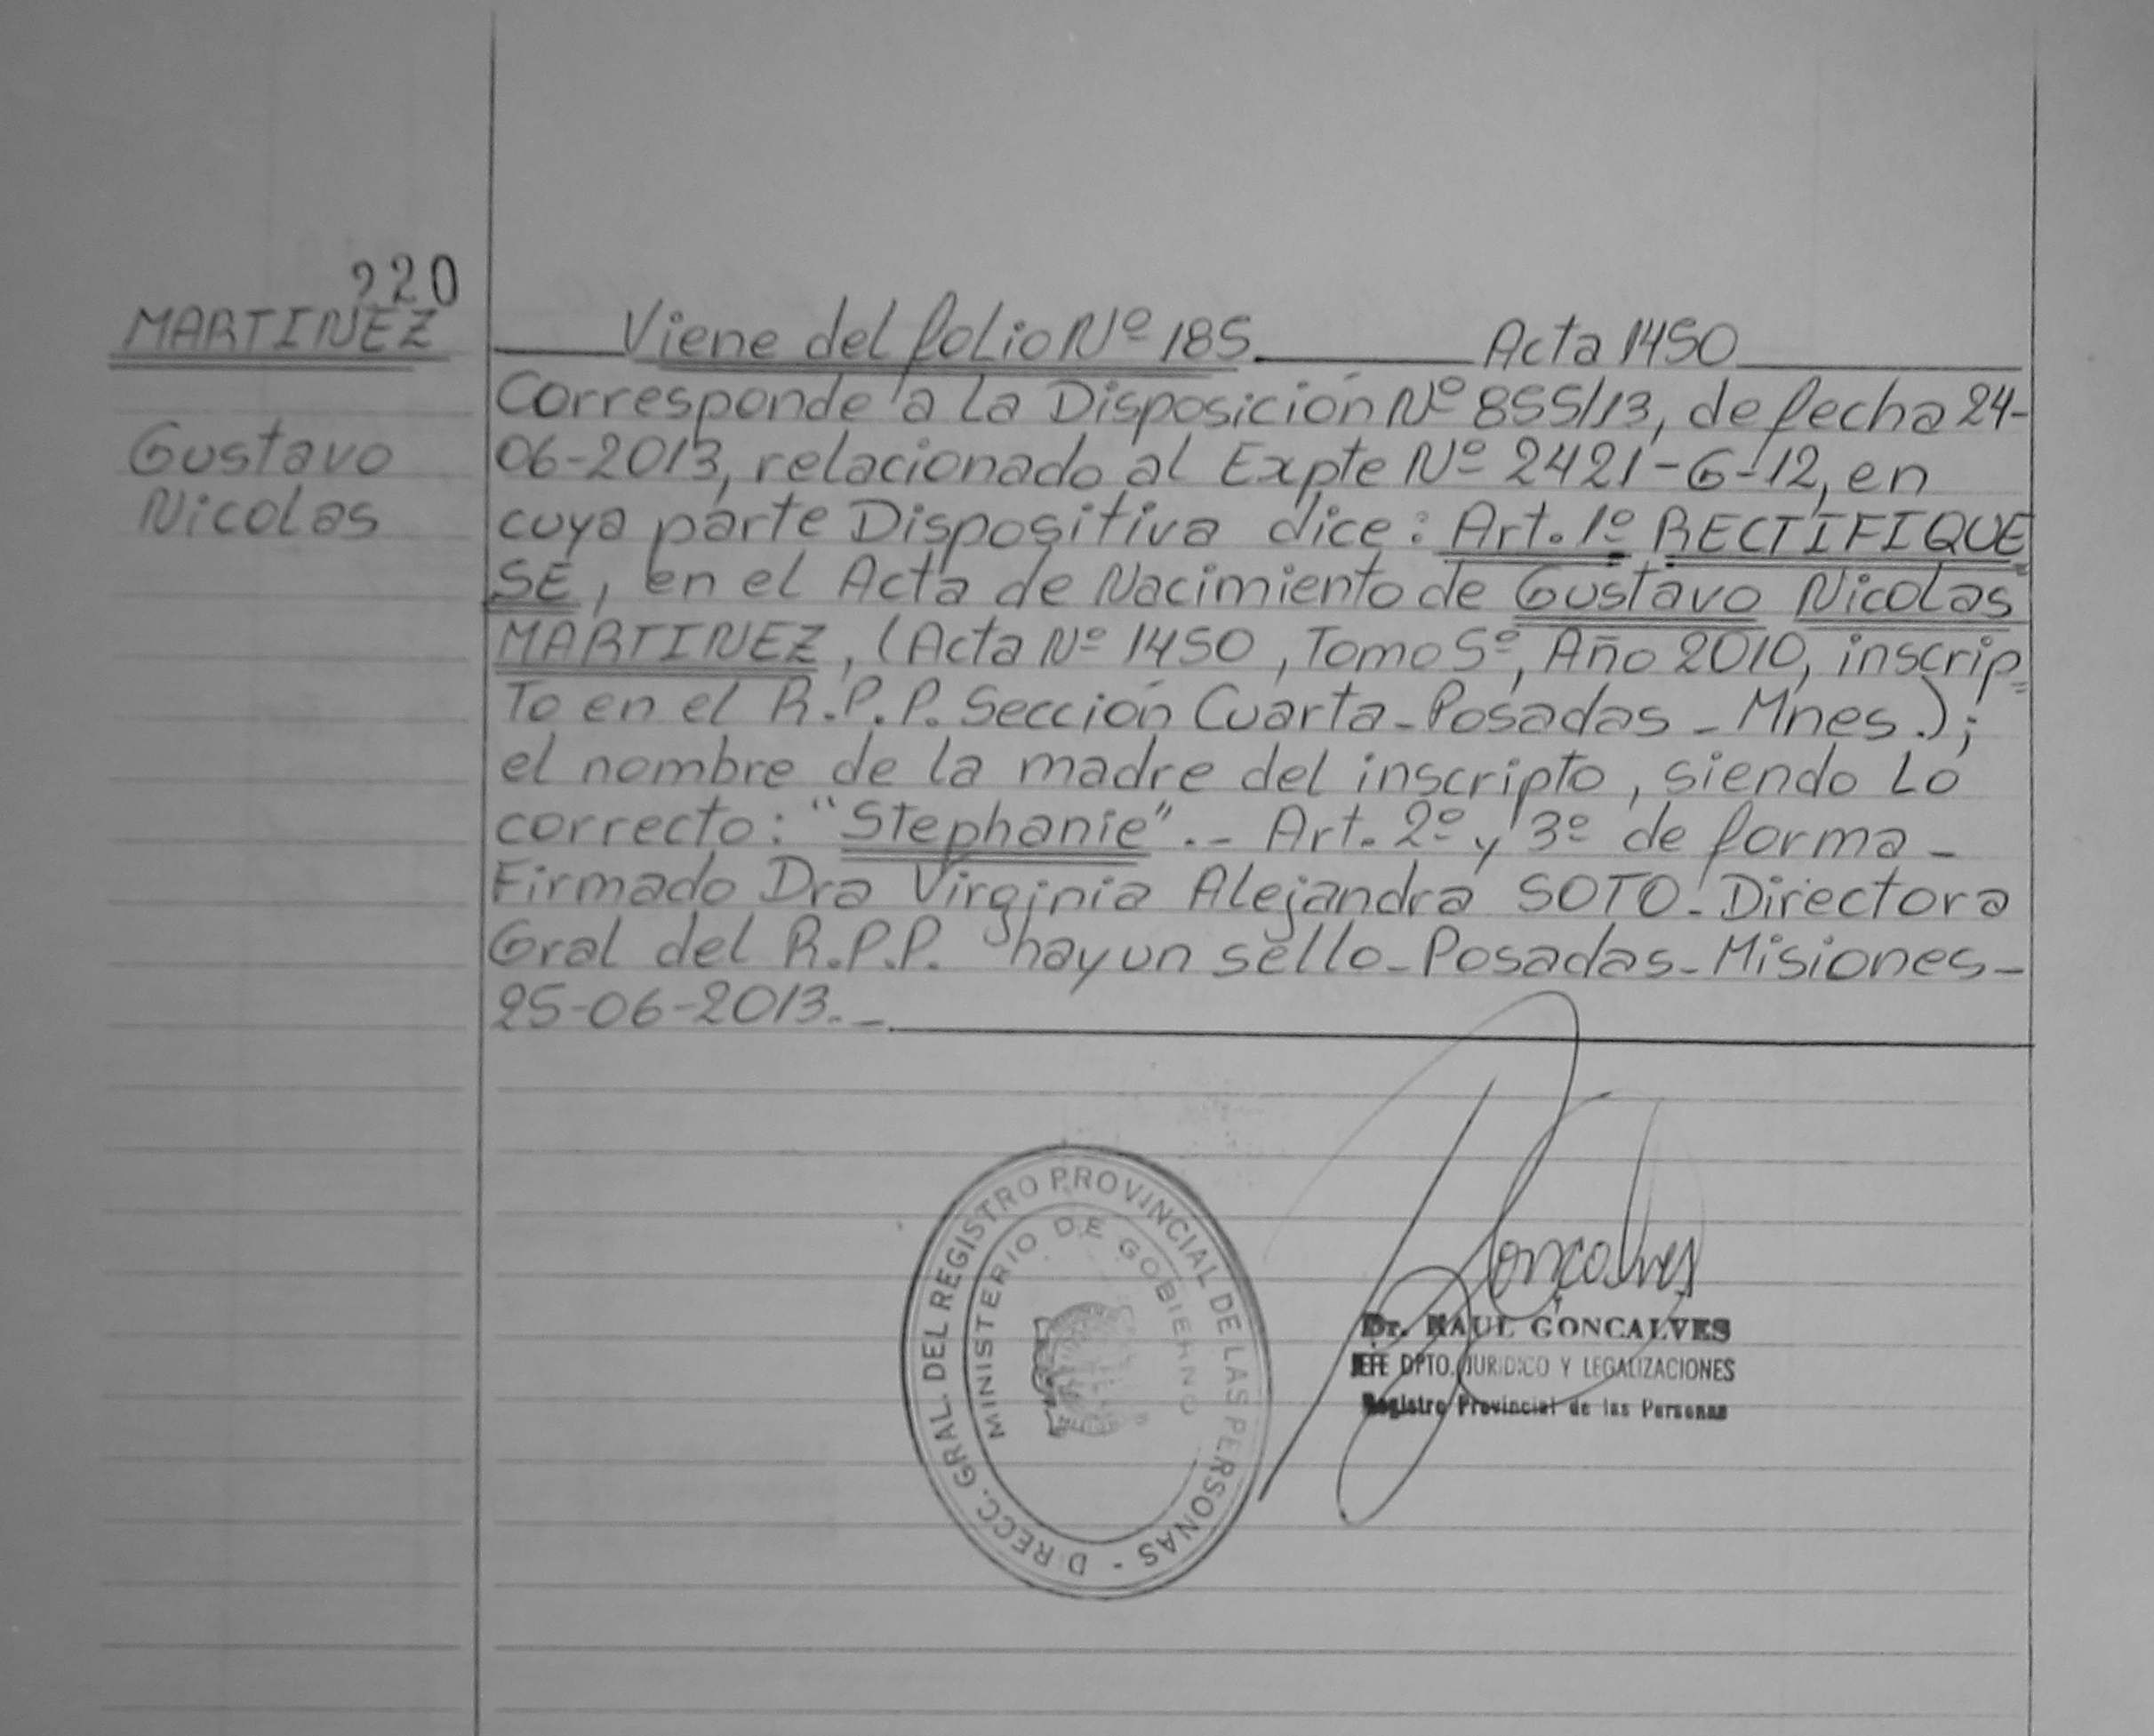 220
MARTINEZ
Gustavo
Nicolas
Viene del folio Nº 185. Acta 1450
Corresponde a la Disposición Nº 855/13, de fecha 24-
06-2013, relacionado al Expte Nº 2421-G-12, en
cuya parte Dispositiva dice: Art. 1º RECTIFIQUE
SE, en el Acta de Nacimiento de Gustavo Nicolas
MARTINEZ, (Acta Nº 1450, Tomo 5º, Año 2010, inscrip=
to en el R.P.P. Sección Cuarta-Posadas - Mnes.);
el nombre de la madre del inscripto, siendo Lo
correcto: "Stephanie".- Art. 2º y 3º de forma -
Firmado Dra Virginia Alejandra SOTO-Directora
Gral del R.P.P. hay un sello-Posadas-Misiones-
25-06-2013.-
DIRECC. GRAL. DEL REGISTRO PROVINCIAL DE LAS PERSONAS -
MINISTERIO DE GOBIERNO
Goncalves
Dr. RAUL GONCALVES
JEFE DPTO. JURIDICO Y LEGALIZACIONES
Registro Provincial de las Personas